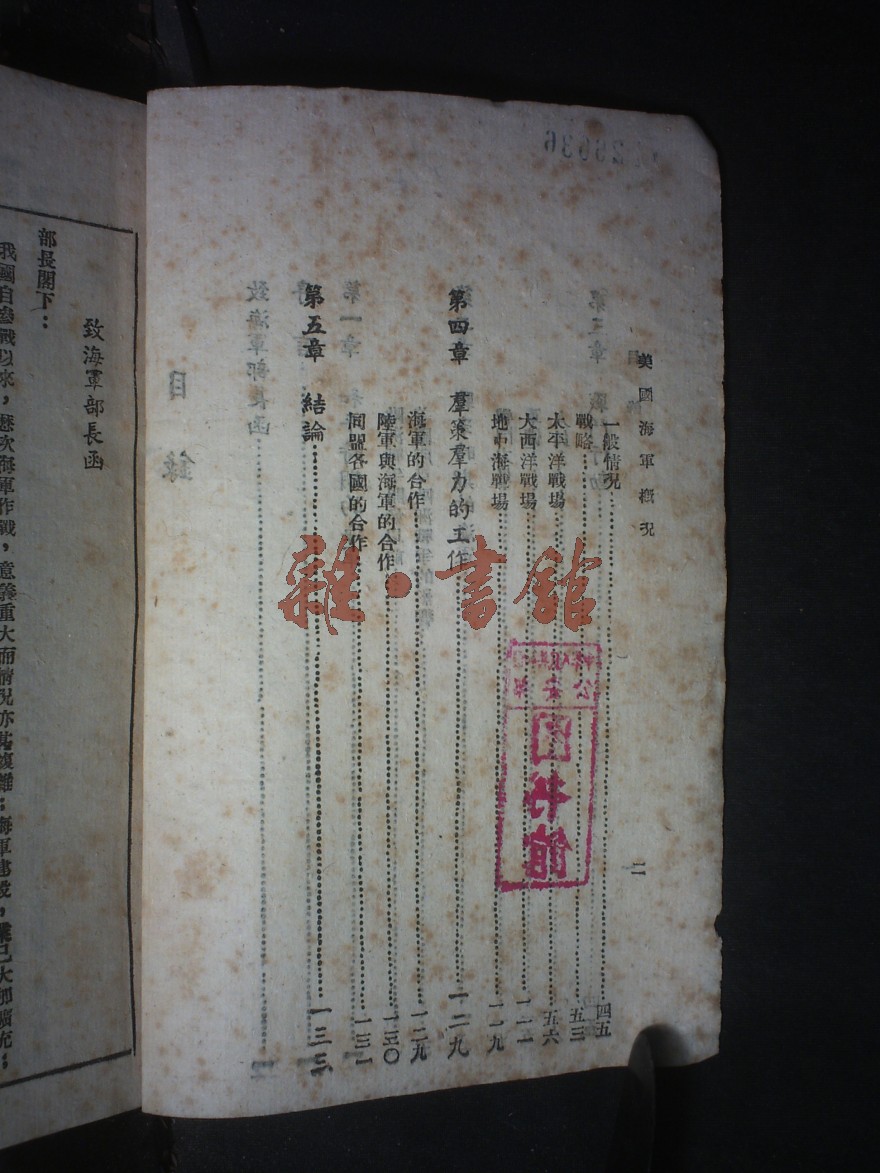 美國海軍概況
二
一般情況 四五
戰略 五三
太平洋戰場 五六
大西洋戰場 一一一
地中海戰場 一一九
第四章 羣策羣力的工作 一二九
海軍的合作 一二九
陸軍與海軍的合作 一三〇
同盟各國的合作 一三一
第五章 結論 一三三
致海軍部長函
部長閣下：
我國自參戰以來，歷次海軍作戰，意義重大而情況亦甚複雜；海軍建設，業已大加擴充；
雜·書館